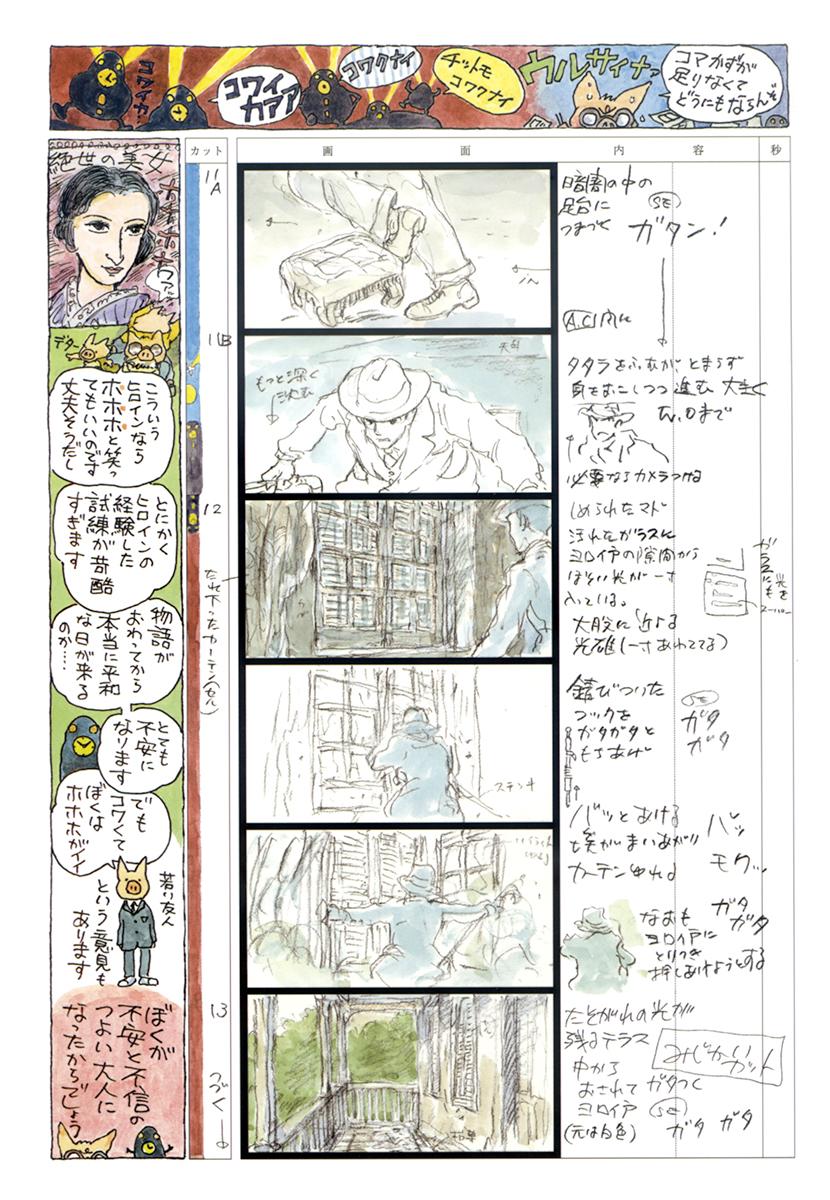 コワイカ
コワイ
カアア
コワクナイ
チットモ
コワクナイ
ウルサイナァ
コマかずが
足りなくて
どうにもならんぞ
絶世の美女
デター
こういう
ヒロインなら
ホホホと笑っ
てもいいのです
丈夫そうだし
とにかく
ヒロインの
経験した
試練が苛酷
すぎます
物語が
おわってから
本当に平和
な日が来る
のか……
とても
不安に
なります
でも
コワくて
ぼくは
ホホホがイイ
若い友人
という意見も
あります
ぼくが
不安と不信の
つよい大人に
なったからでしょう
カット
画面
内容
秒
11A
in
暗闇の中の
足台に
つまづく
SE
ガタン!
11B
もっと深く
沈む
A.C
タタラをふむが、とまらず
身をおこしつつ進む 大きく
必要ならカメラつける
12
たれ下ったカーテン(セル)
しめられたマド
汚れたガラスに
ヨロイドの隙間から
ほそい光が一寸
入っている。
大股に近よる
光雄(一寸あわててる)
ガラスにも光を
錆びついた
フックを
ガタガタと
もちあげ
SE
ガタ
ガタ
ステッキ
バッとあける
埃がまいあがり
カーテンゆれる
バッ
モクッ
なおも
ヨロイドに
とりつき
押しあけようとする
ガタ
ガタ
13
つづく
たそがれの光が
残るテラス
中から
おされてガタつく
ヨロイド
(元は白色)
SE
ガタ ガタ
みじかい
カット